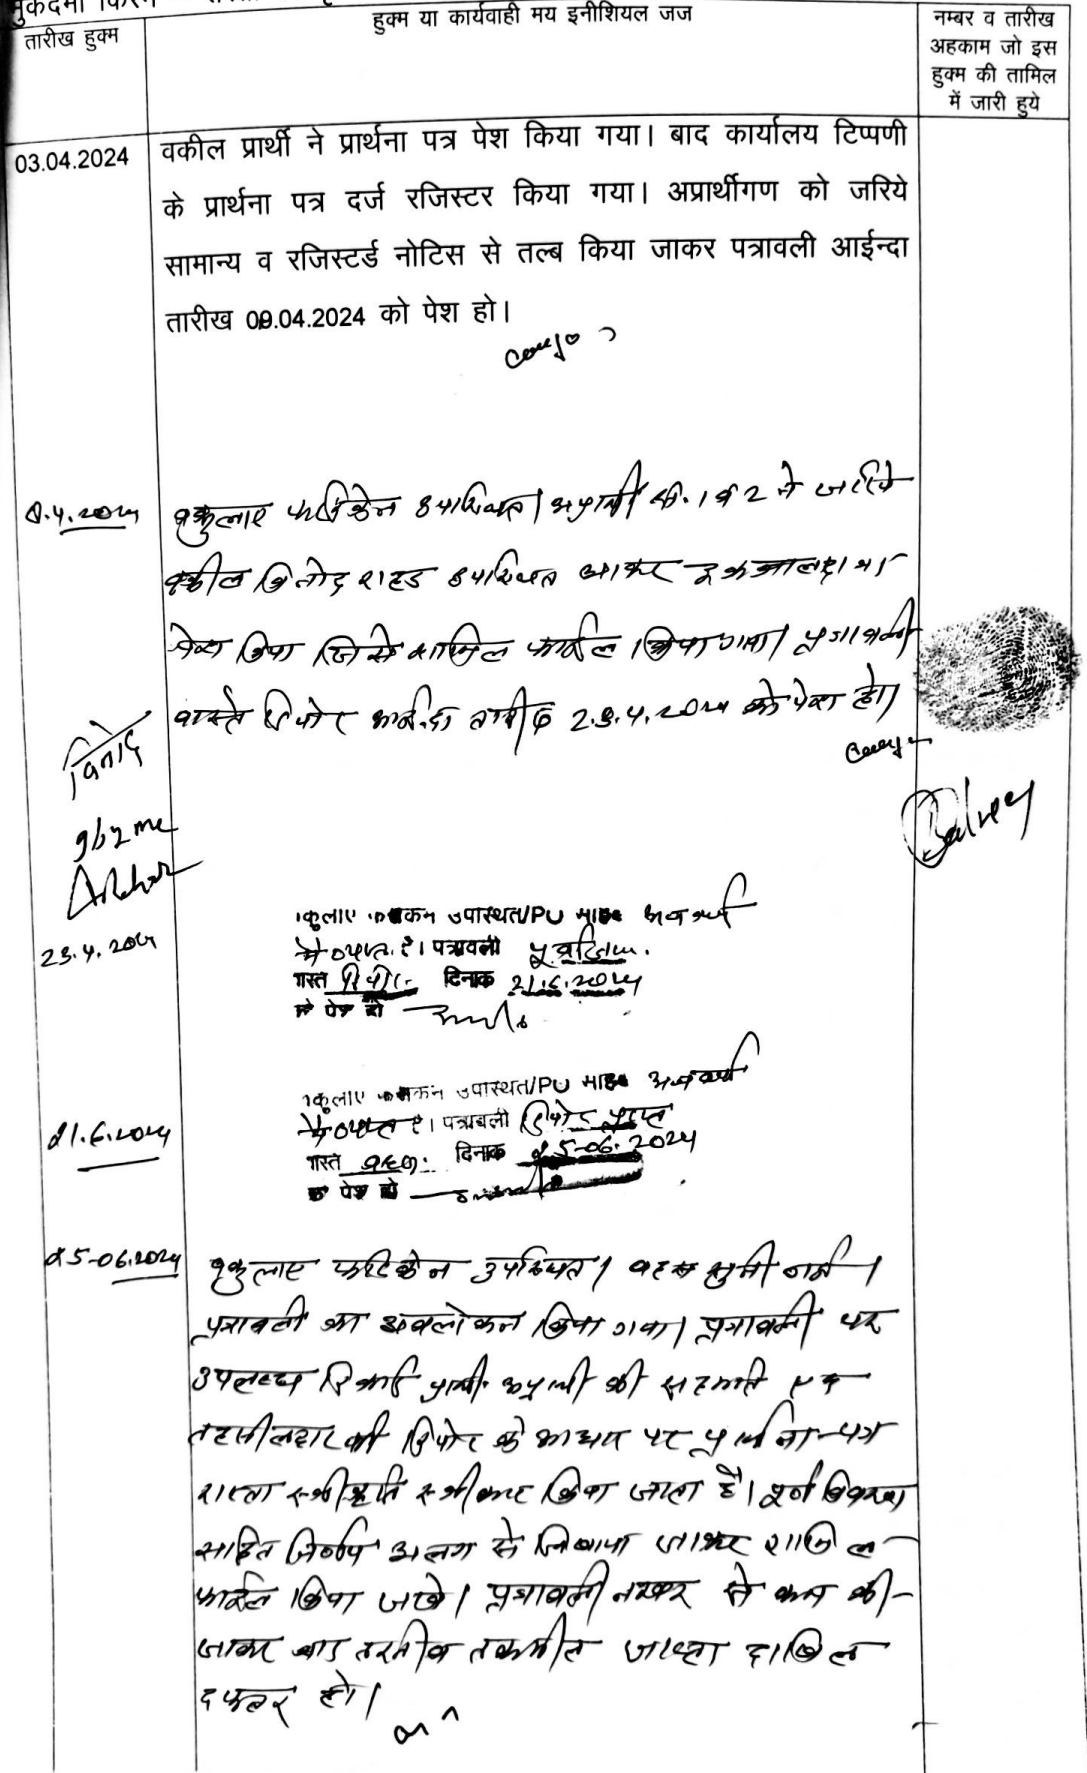 तारीख हुक्म
हुक्म या कार्यवाही मय इनीशियल जज
नम्बर व तारीख
अहकाम जो इस
हुक्म की तामिल
में जारी हुये
03.04.2024
वकील प्रार्थी ने प्रार्थना पत्र पेश किया गया। बाद कार्यालय टिप्पणी
के प्रार्थना पत्र दर्ज रजिस्टर किया गया। अप्रार्थीगण को जरिये
सामान्य व रजिस्टर्ड नोटिस से तल्ब किया जाकर पत्रावली आईन्दा
तारीख 09.04.2024 को पेश हो।
वकुलाए फरिकेन उपस्थित। अप्रार्थी सं. 1 व 2 ने जरिये
वकील विनोद उपस्थित आकर
पेश किया जिसे शामिल फाईल किया गया। पत्रावली
वास्ते रिपोर्ट आईन्दा तारीख 23.4.2024 को पेश हो।
विनोद
23.4.2024
वकुलाए फरिकेन उपस्थित/PO
पत्रावली
वास्ते रिपोर्ट दिनांक 21.6.2024
को पेश हो
21.6.2024
वकुलाए फरिकेन उपस्थित/PO
पत्रावली रिपोर्ट प्राप्त
वास्ते बहस दिनांक 25-06-2024
को पेश हो
25-06-2024
वकुलाए फरिकेन उपस्थित। बहस सुनी गई।
पत्रावली का अवलोकन किया गया। पत्रावली पर
उपलब्ध रिकार्ड प्रार्थी अप्रार्थी की सहमति एवं
तहसीलदार की रिपोर्ट के आधार पर प्रार्थना-पत्र
रास्ता स्वीकृति स्वीकार किया जाता है। पूर्ण विवरण
सहित निर्णय अलग से लिखाया जाकर शामिल
फाईल किया जावे। पत्रावली नम्बर से कम की-
जाकर बाद तरतीब तकमील जाब्ता दाखिल
दफ्तर हो।